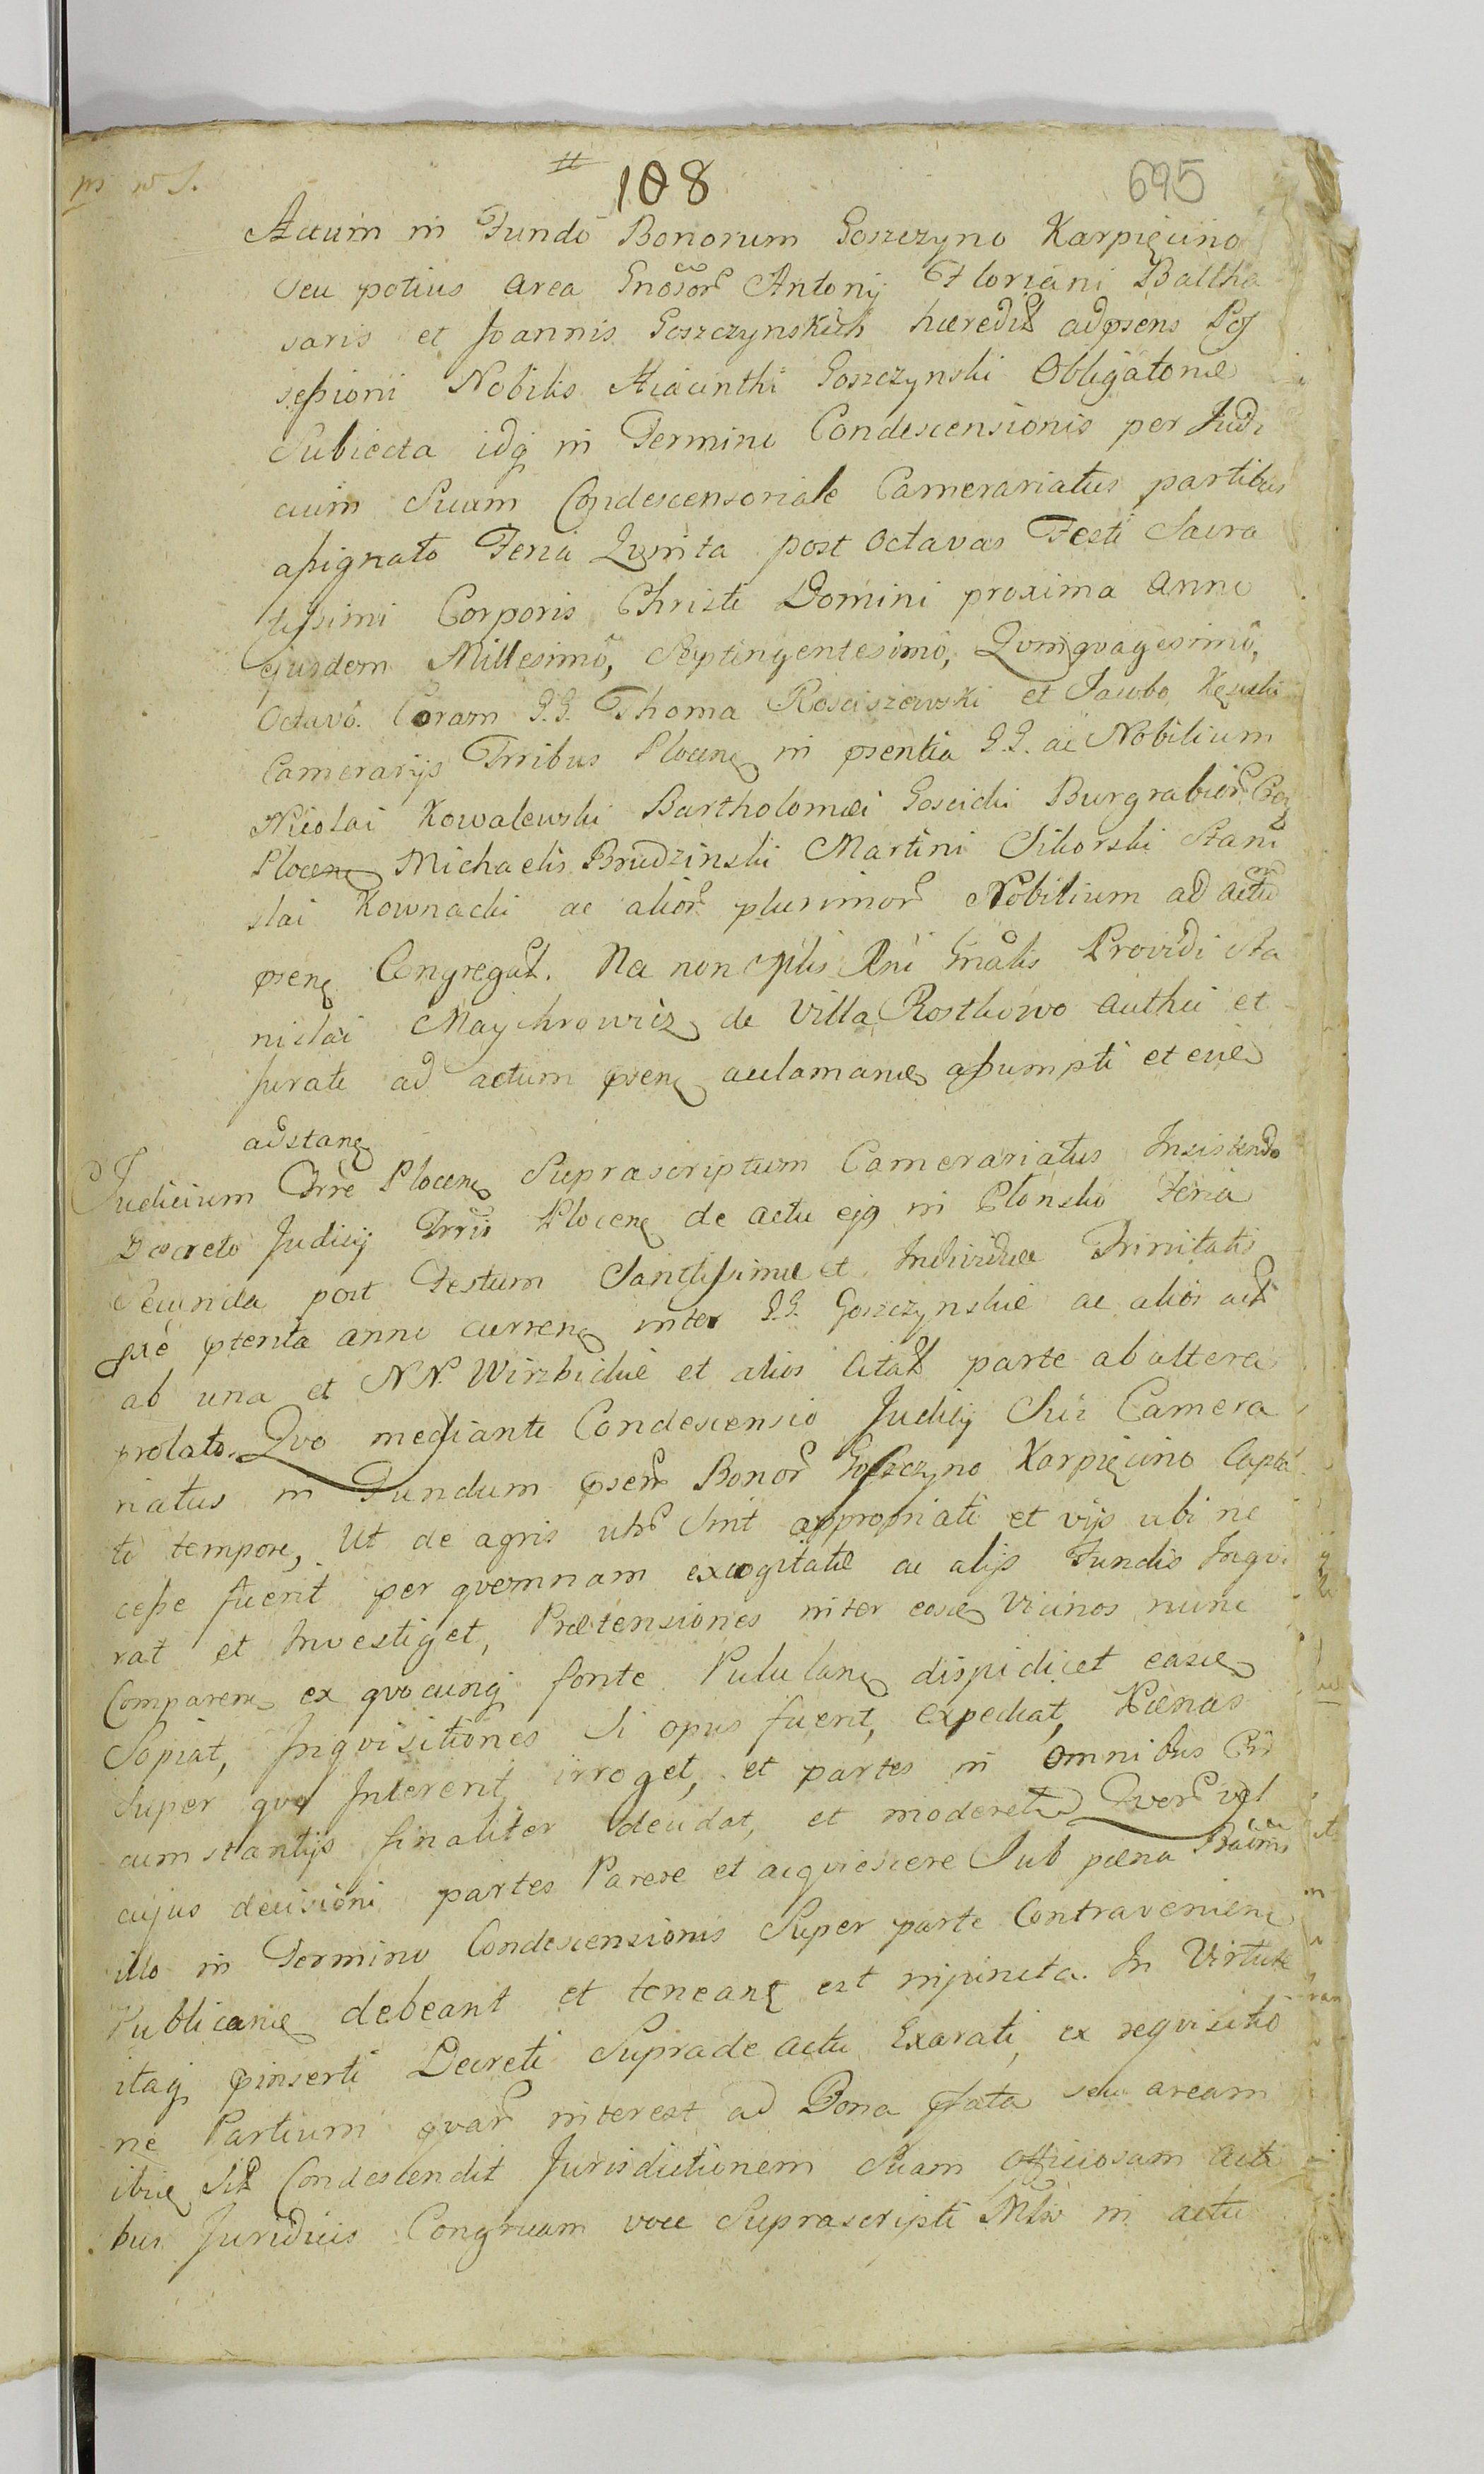 m w S.
# 108 695
Actum in Fundo Bonorum Goszczyno Karpięcino
seu potius area Gnosor Antonij Floriani Baltha
saris et Joannis Goszczynskich hæred adpsens Pos
sessioni Nobilis Hiacinthi Goszczynski Obligatoriæ
Subiecta idq in Termino Condescensionis per Judi
cium Suum Condescensoriale Camerariatus partibus
assignato Feria Quinta post Octavas Festi Sacra
tissimi Corporis Christi Domini proxima Anno
ejusdem Millesimo, Septingentesimo, Quinquagesimo,
Octavo. Coram G.G. Thoma Rosciszewski et Jacobo Kęsicki
Camerarijs Trribus Plocen in psentia G.G. ac Nobilium
Nicolai Kowalewski Bartholomæi Goscicki Burgrabior
Plocen Michaelis Brudzinski Martini Sikorski Stani
slai Kownacki ac alior plurimor Nobilium ad actu
psen Congregat. Na non Mlis Rni Gnalis Providi Sta
nislai Maychrowicz de Villa Rostkowo authci et
Jurati ad actum psen acclamand assumpti et
adstan
Judicium Trre Plocen Suprascriptum Camerariatus Insistendo
Decreto Judicij Trris Plocen de actu ejq in Płonsko Feria
Secunda post Festum Sanctissimæ et Individuæ Trinitatis
pterita anno curren inter G.G. Goszczynskie ac alios act
ab una et NN. Wirzbickie et alios citat parte ab altera
prolato. Quo mediante Condescensio Judicij Sui Camera
riatus in Fundum psen Bonor Goszczyno Karpięcino Capta
to tempore, Ut de agris utr Sint appropriati et vijs ubi ne
cesse fuerit per quemnam excogitatæ ac alijs Fundis Inqui
rat et Investiget, Prætensiones inter eosd Vicinos nunc
Comparen ex quocunq fonte Pululan dispidicet easd
Sopiat, Inquisitiones Si opus fuerit, expediat, Pœnas
Super quo Intererit irroget, et partes in omnibus Cir
cumstantijs finaliter decidat, et moderet Quer vel
cujus decisioni partes Parere et acquiescere Sub pœna
illo in Termino Condescensionis Super parte Contravenien
Publicand debeant et tenean est injuncta. In Virtute
itaq pinserti Decreti Supra de actu Exarati, ex requisitio
ne Partium quar interest ad Bona pfata seu aream
ibid Sit Condescendit Jurisdictionem Suam officiosam acti
bus Juridicis Congruam voce Suprascripti Mlis in actu